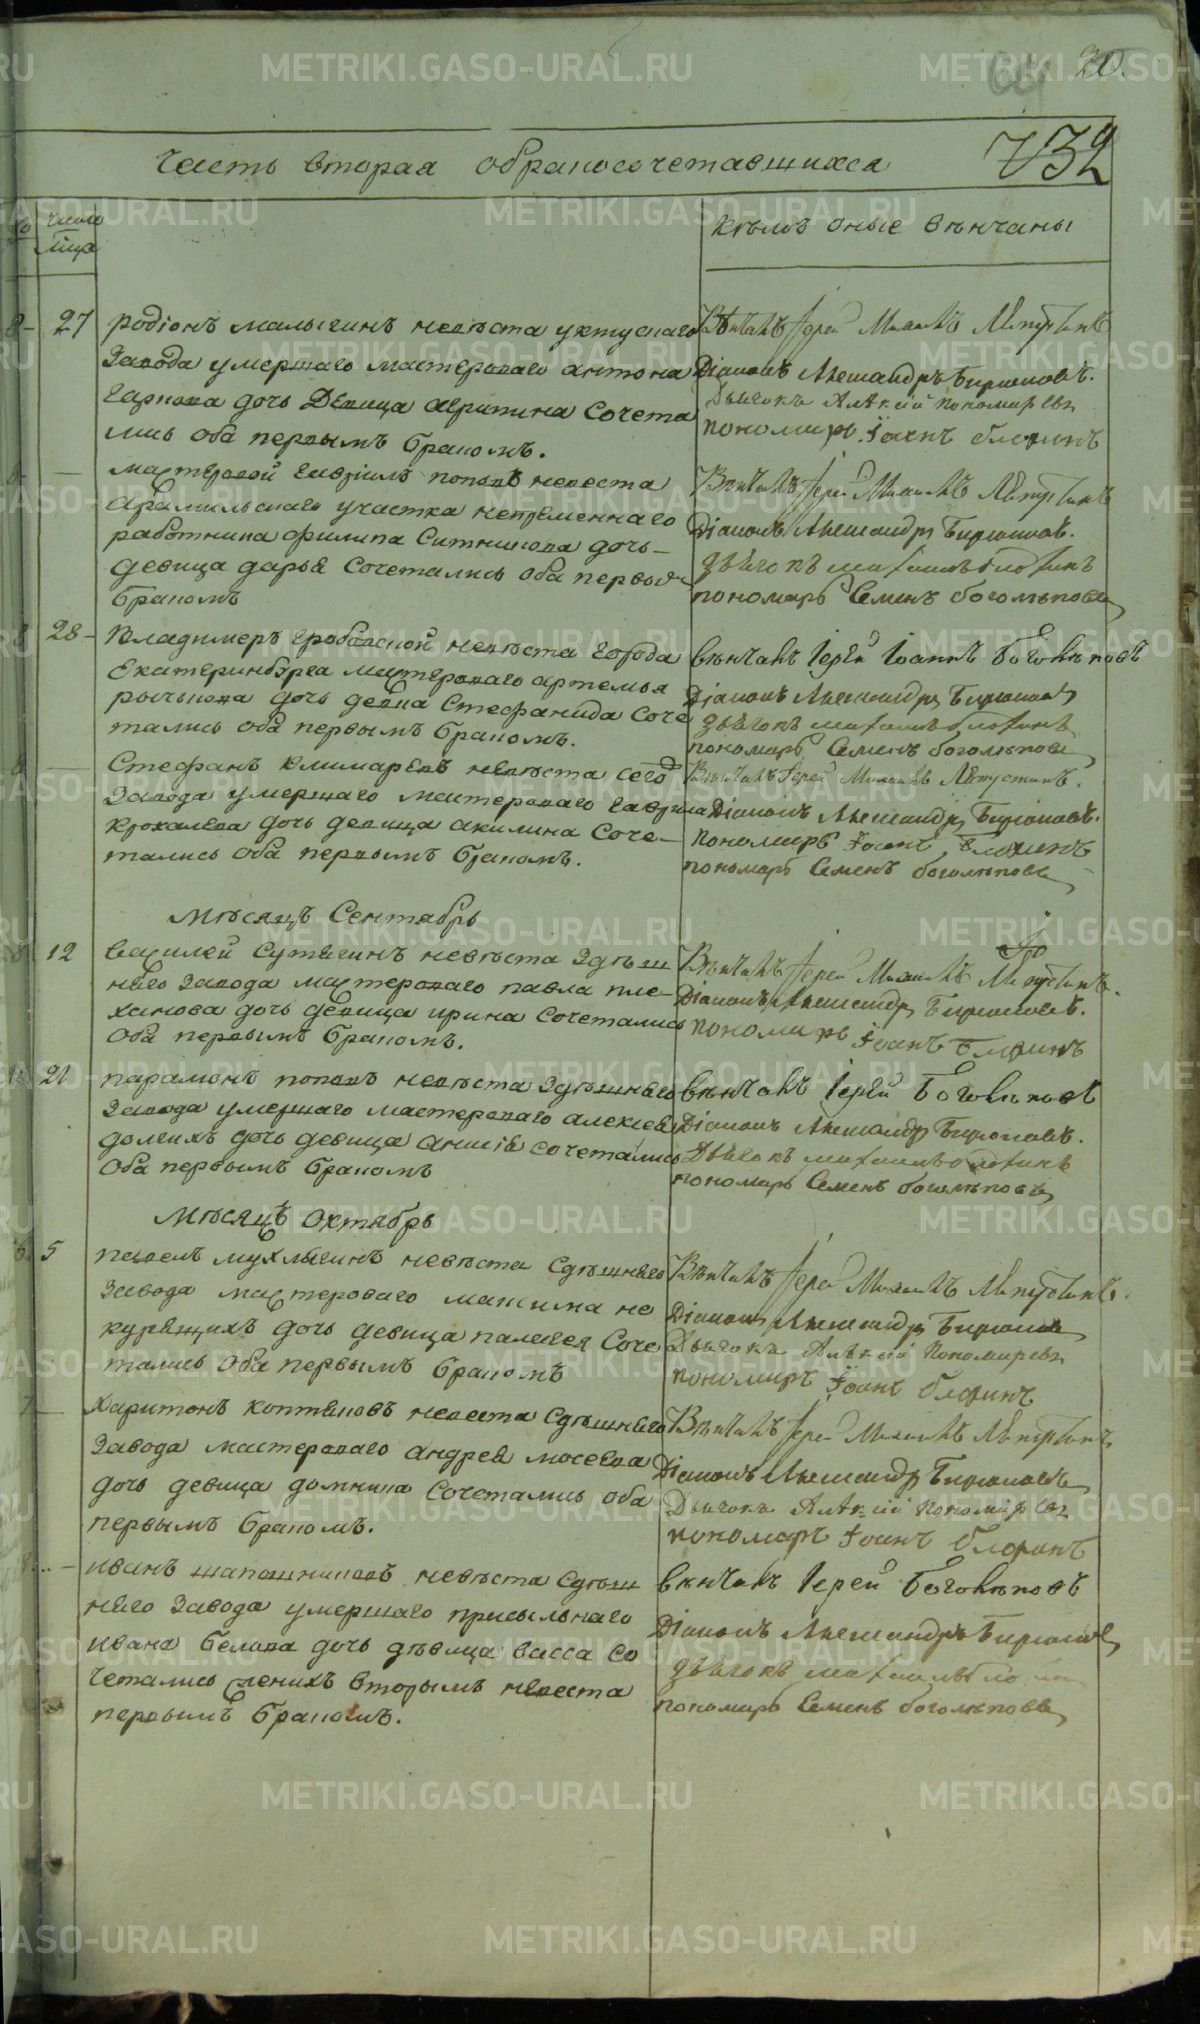 20.
732
Часть вторая обракосочетавшихся
число
мца
Кѣмъ оные вѣнчаны
27 родіонъ малыгинъ невѣста уктускаго
завода умершаго мастероваго антона
дочь Девица агрипина сочета
лись оба первымъ бракомъ.
Вѣнчалъ Іерей Михаилъ
Діаконъ Александръ Бирюковъ.
Дьячокъ Алѣксій Пономаревъ
пономарь Іоаннъ блохинъ
мастеровой гавріилъ поповъ невеста
арамильскаго участка непременнаго
работника филипа Ситникова дочь
девица дарья сочетались оба первы
бракомъ
Вѣнчалъ Іерей Михаилъ
Діаконъ Александръ Бирюковъ.
дьячокъ
пономарь Семенъ боголѣповъ
28 Владимеръ невѣста города
Екатеринбурга мастероваго артемья
дочь девка Стефанида соче
тались оба первымъ бракомъ.
вѣнчалъ Іерей Іоаннъ Боголѣповъ
Діаконъ Александръ Бирюковъ
дьячокъ
пономарь Семенъ боголѣповъ
Стефанъ невѣста сего
завода умершаго мастероваго гаврила
крохалева дочь девица акилина соче
тались оба первымъ бракомъ.
Вѣнчалъ Іерей Михаилъ
Діаконъ Александръ Бирюковъ.
пономарь Іоаннъ Блохинъ
пономарь Семенъ боголѣповъ
Мѣсяцъ Сентябрь
12 василей Сутягинъ невѣста здѣш
няго завода мастероваго павла пле
ханова дочь девица ирина сочетались
оба первымъ бракомъ.
Вѣнчалъ Іерей Михаилъ
Діаконъ Александръ Бирюковъ.
пономарь Іоаннъ Блохинъ
21 парамонъ поповъ невѣста здѣшняго
завода умершаго мастероваго алексея
долгихъ дочь девица анисія сочетались
оба первымъ бракомъ
вѣнчалъ Іерей Боголѣповъ
Діаконъ Александръ Бирюковъ.
Дьячокъ
пономарь Семенъ боголѣповъ
Мѣсяцъ Октябрь
5 павелъ мухлыгинъ невѣста Сдѣшняго
завода мастероваго максима не
курящихъ дочь девица палагея соче
тались оба первымъ бракомъ
Вѣнчалъ Іерей Михаилъ
Діаконъ Александръ Бирюковъ
Дьячокъ Алѣксій Пономаревъ
пономарь Іоаннъ блохинъ
Харитонъ коптяковъ невеста Сдѣшняго
завода мастероваго андрея мосеева
дочь девица домнина сочетались оба
первымъ бракомъ.
Вѣнчалъ Іерей Михаилъ
Діаконъ Александръ Бирюковъ
Дьячокъ Алѣксій Пономаревъ
пономарь Іоаннъ блохинъ
иванъ шапошниковъ невѣста Сдѣш
няго завода умершаго присыльнаго
ивана белова дочь дѣвица васса со
четались женихъ вторымъ невеста
первымъ бракомъ.
вѣнчалъ Іерей Боголѣповъ
Діаконъ Александръ Бирюковъ
дьячокъ
пономарь Семенъ боголѣповъ
METRIKI.GASO-URAL.RU